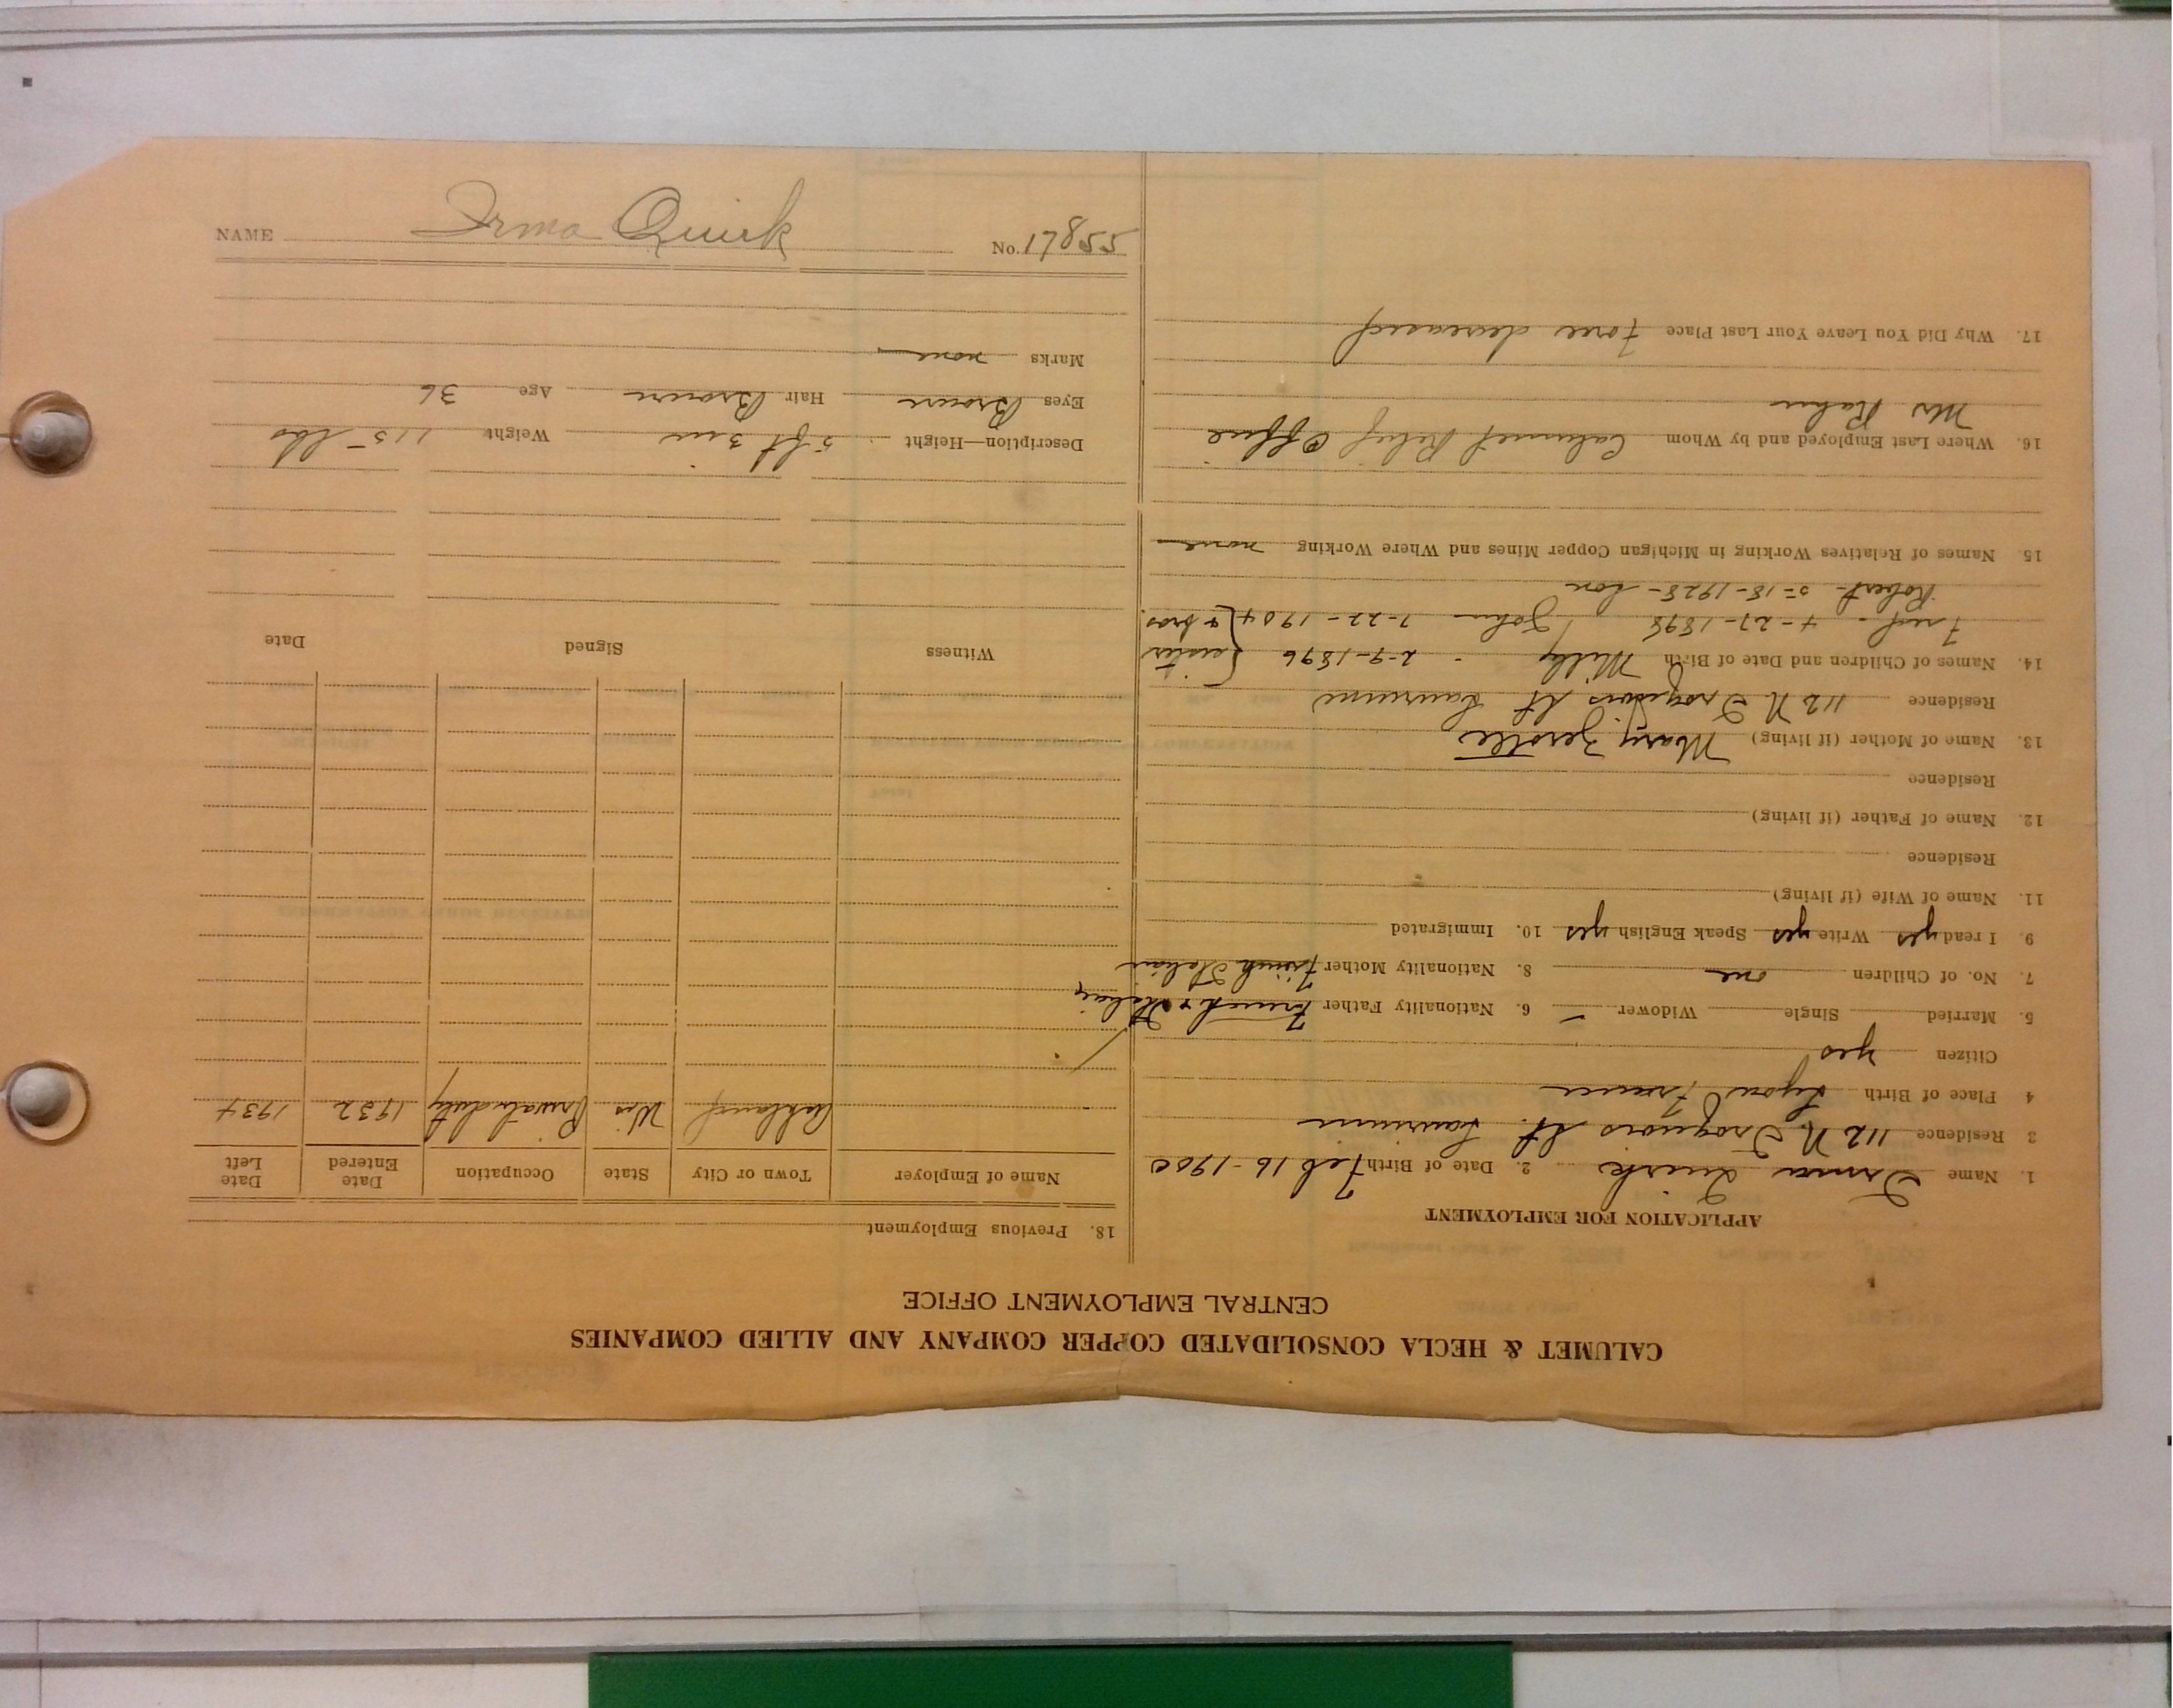 CALUMET & HECLA CONSOLIDATED COPPER COMPANY AND ALLIED COMPANIES
CENTRAL EMPLOYMENT OFFICE
APPLICATION FOR EMPLOYMENT
1. Name Irma Quirk 2. Date of Birth Feb 16-1900
3 Residence 112 N. Iroquois St. Laurium
4 Place of Birth Lyon France
Citizen yes
5. Married Single Widower 6. Nationality Father French & Italian
7. No. of Children one 8. Nationality Mother French Italian
9. I read yes Write yes Speak English yes 10. Immigrated
11. Name of Wife (if living)
Residence
12. Name of Father (if living)
Residence
13. Name of Mother (if living) Mary
Residence 112 N Iroquois St Laurium
14. Names of Children and Date of Birth Milly - 2-9-1896 sister
Fred - 4-27-1898 John - 7-22-1904 } 4 bros.
Robert - 5-18-1928 - son
15. Names of Relatives Working in Michigan Copper Mines and Where Working none
16. Where Last Employed and by Whom Calumet Relief Office
Mrs Rahn
17. Why Did You Leave Your Last Place Force decreased
18. Previous Employment
Name of Employer Town or City State Occupation Date Entered Date Left
Ashland Wis Private duty 1932 1934
Witness Signed Date
Description—Height 5 ft 3 in Weight 115 lbs
Eyes Brown Hair Brown Age 36
Marks none
NAME Irma Quirk No. 17855